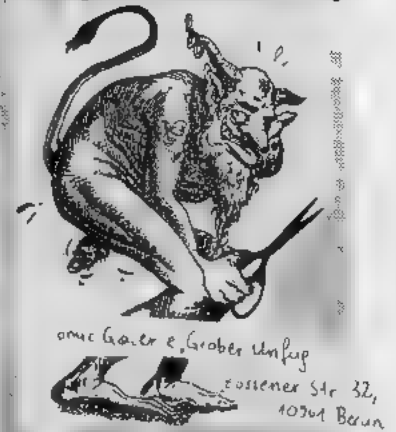 omic Galerie, Grober Unfug
Zossener Str 32,
10961 Berlin